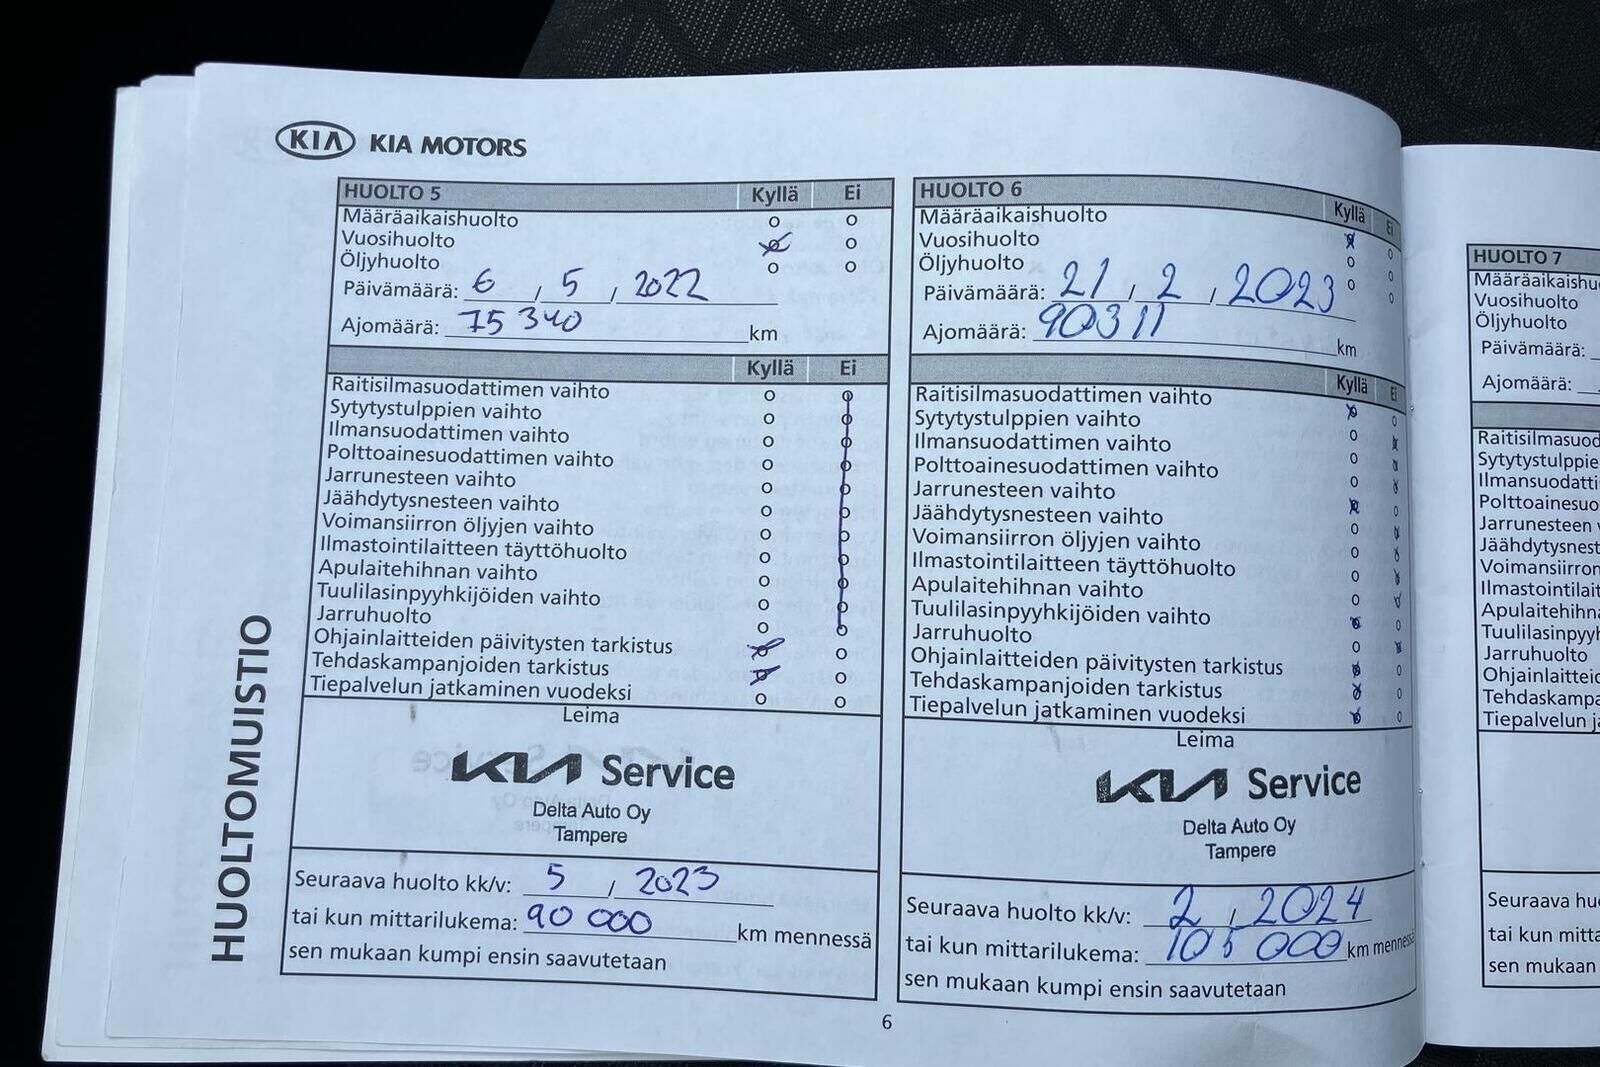 KIA KIA MOTORS
HUOLTOMUISTIO
HUOLTO 5 Kyllä Ei
Määräaikaishuolto
Vuosihuolto
Öljyhuolto
Päivämäärä: 6 / 5 / 2022
Ajomäärä: 75 340 km
Kyllä Ei
Raitisilmasuodattimen vaihto
Sytytystulppien vaihto
Ilmansuodattimen vaihto
Polttoainesuodattimen vaihto
Jarrunesteen vaihto
Jäähdytysnesteen vaihto
Voimansiirron öljyjen vaihto
Ilmastointilaitteen täyttöhuolto
Apulaitehihnan vaihto
Tuulilasinpyyhkijöiden vaihto
Jarruhuolto
Ohjainlaitteiden päivitysten tarkistus
Tehdaskampanjoiden tarkistus
Tiepalvelun jatkaminen vuodeksi
Leima
KIA Service
Delta Auto Oy
Tampere
Seuraava huolto kk/v: 5 / 2023
tai kun mittarilukema: 90 000 km mennessä
sen mukaan kumpi ensin saavutetaan
HUOLTO 6 Kyllä Ei
Määräaikaishuolto
Vuosihuolto
Öljyhuolto
Päivämäärä: 21 / 2 / 2023
Ajomäärä: 90311 km
Kyllä Ei
Raitisilmasuodattimen vaihto
Sytytystulppien vaihto
Ilmansuodattimen vaihto
Polttoainesuodattimen vaihto
Jarrunesteen vaihto
Jäähdytysnesteen vaihto
Voimansiirron öljyjen vaihto
Ilmastointilaitteen täyttöhuolto
Apulaitehihnan vaihto
Tuulilasinpyyhkijöiden vaihto
Jarruhuolto
Ohjainlaitteiden päivitysten tarkistus
Tehdaskampanjoiden tarkistus
Tiepalvelun jatkaminen vuodeksi
Leima
KIA Service
Delta Auto Oy
Tampere
Seuraava huolto kk/v: 2 / 2024
tai kun mittarilukema: 105 000 km mennessä
sen mukaan kumpi ensin saavutetaan
6
HUOLTO 7
Määräaikaishu
Vuosihuolto
Öljyhuolto
Päivämäärä:
Ajomäärä:
Raitisilmasuod
Sytytystulppie
Ilmansuodatti
Polttoainesuo
Jarrunesteen
Jäähdytysnest
Voimansiirron
Ilmastointilait
Apulaitehihna
Tuulilasinpyyh
Jarruhuolto
Ohjainlaitteid
Tehdaskampa
Tiepalvelun ja
Seuraava hu
tai kun mitta
sen mukaan